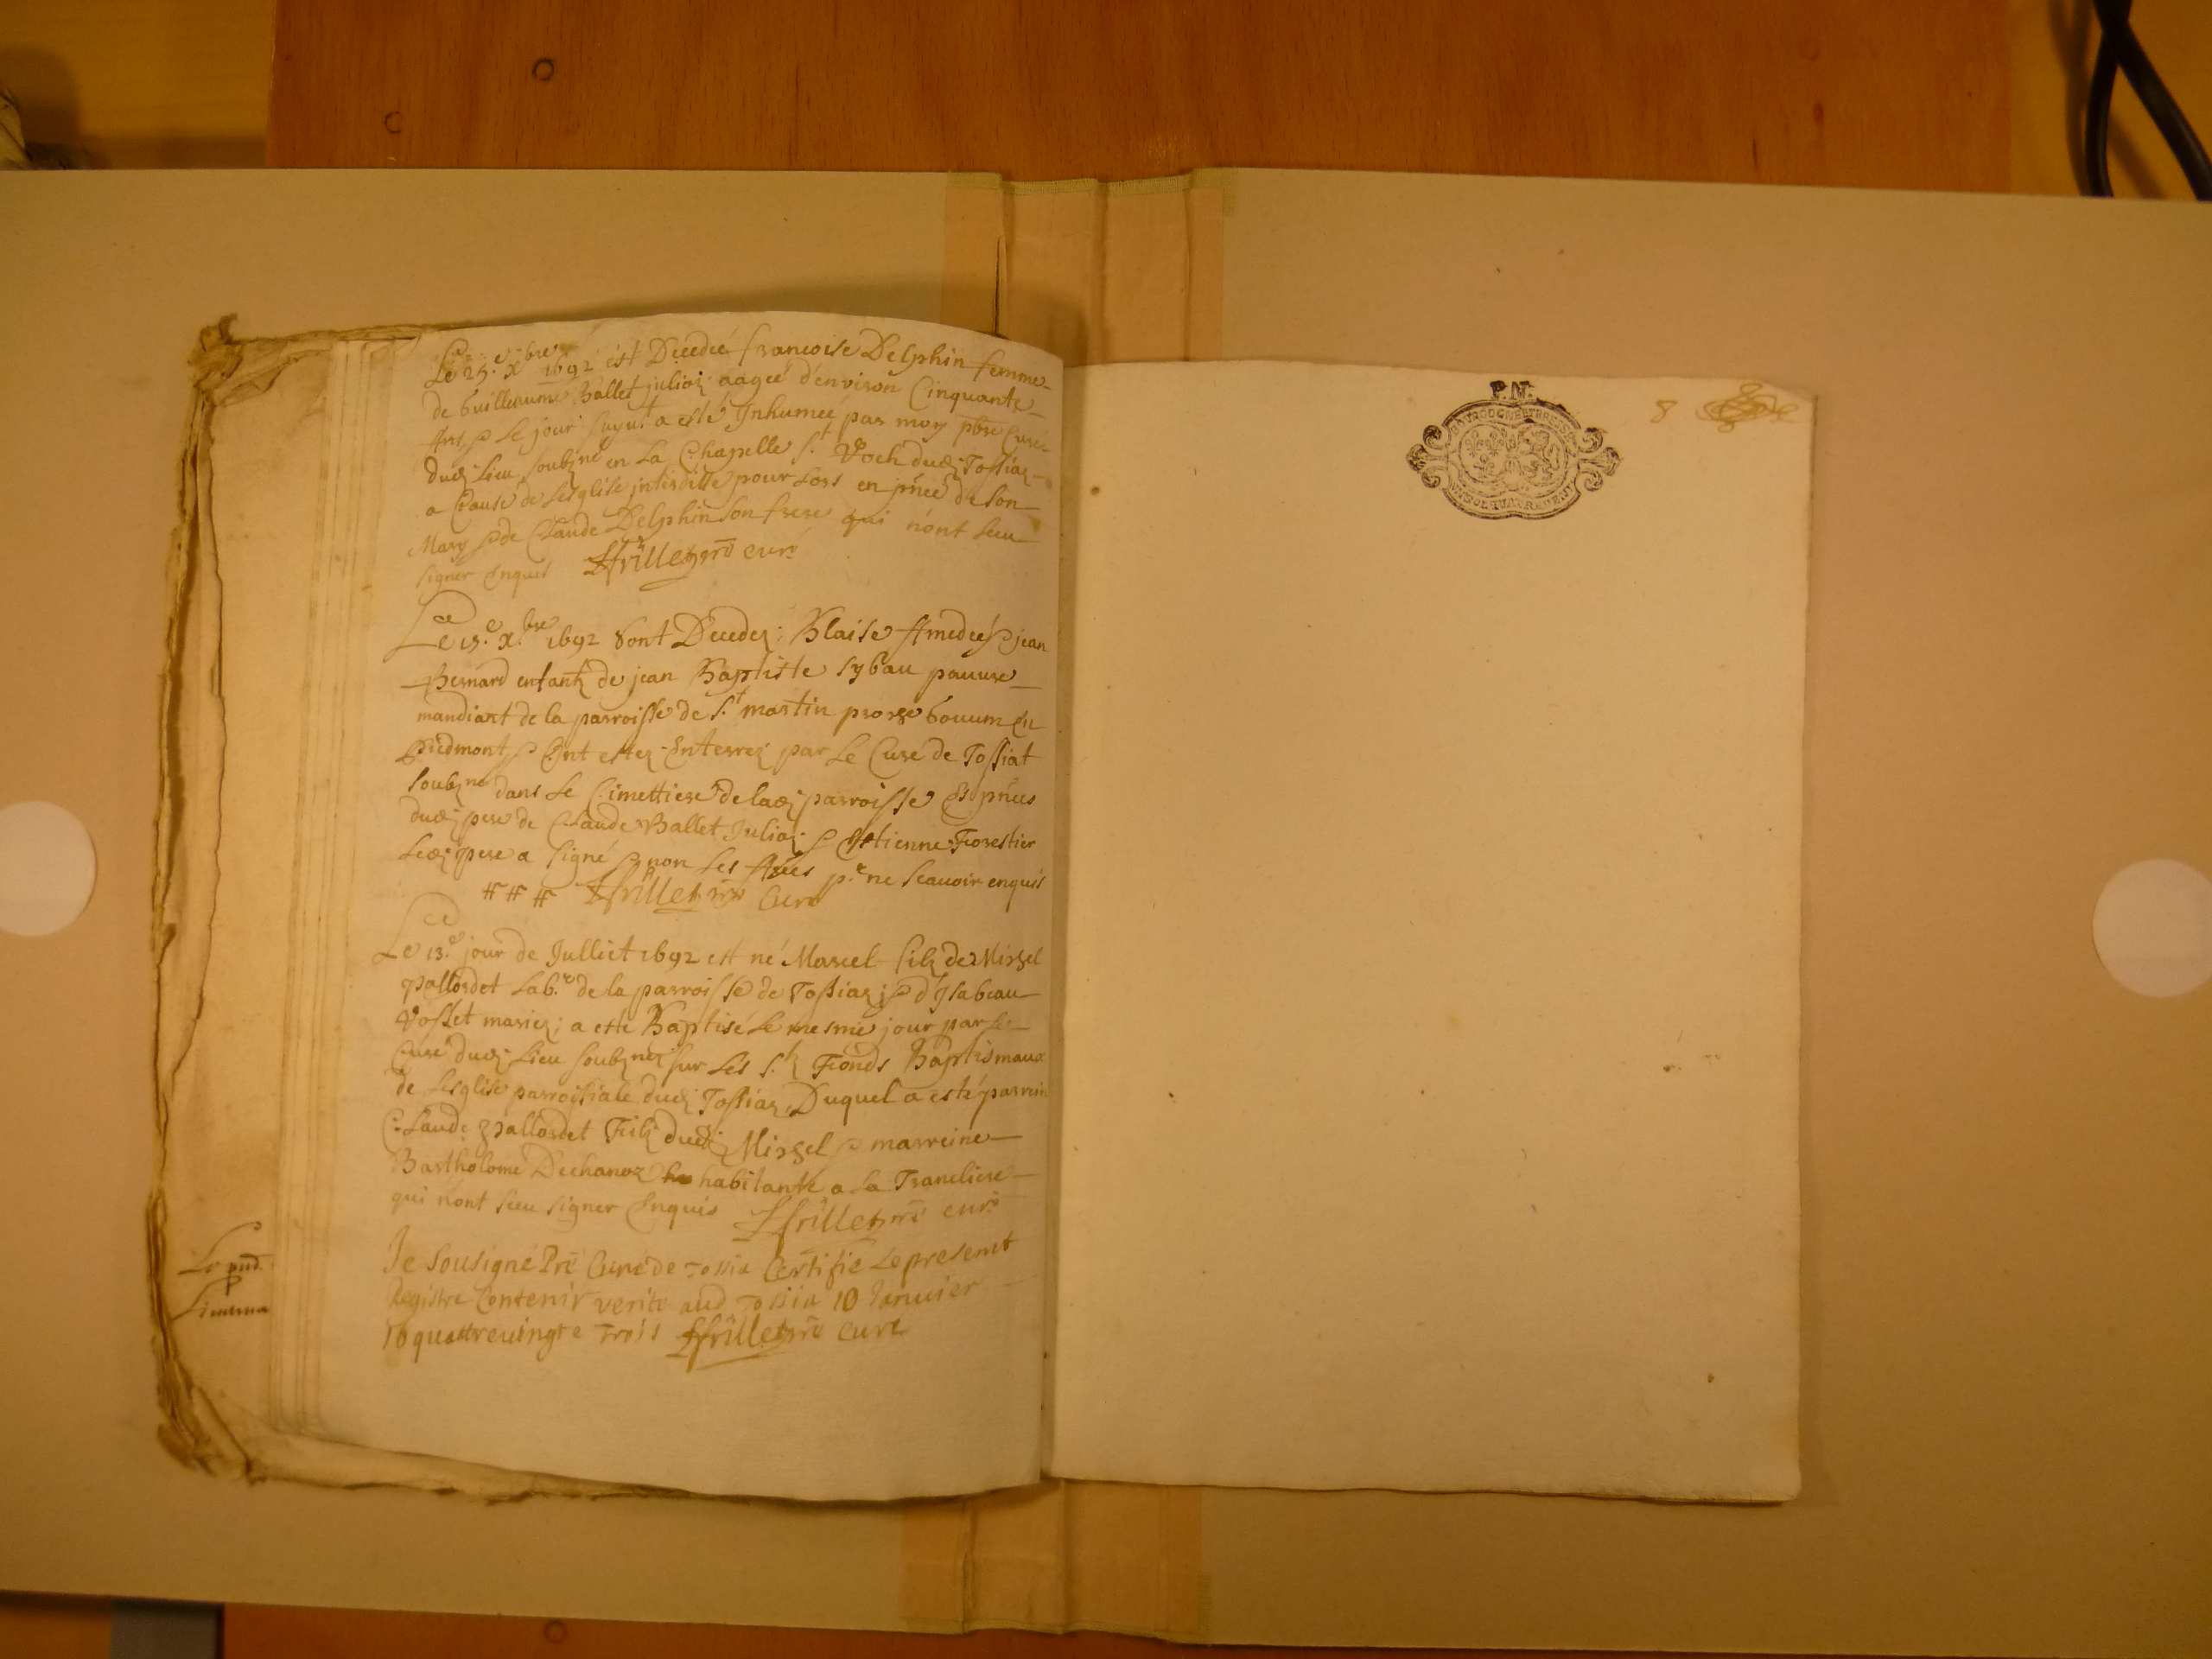 Le 25.e xbre 1692 est Decedée francoise Delphin femme
de Guillaume Ballet Julian aagée d'environ Cinquante
Ans & le jour suyut. a esté Inhumée par moy pbre Curé
dud. Lieu soubzné en La Chapelle St. Roch dud. Tossiaz
a Cause de Lesglise interditte pour Lors en pnce de son
Mary & de Claude Delphin son frere qui n'ont sceu
signer Enquis Ffrillet pre curé
Le 15.e x.bre 1692 sont Decedez Blaise Amedée & jean
Bernard enfantz de jean Baptiste pauure
mandiant de la parroisse de St. martin En
Piedmont & Ont estez Enterrez par Le Curé de Tossiat
soubzné dans Le Cimettiere de lad. parroisse Es pnces
dud. pere de Claude Ballet Julian & Estienne Forestier
Led. pere a signé & non Les Aues p.r ne scauoir enquis
Ffrillet pre Curé
Le 13.e jour de Julliet 1692 est né Marcel filz de Mirgel
Pallordet Lab.r de la parroisse de Tossiaz & d'Isabeau
Vosset mariez; a esté Baptisé Le mesme jour par Le
Curé dud. Lieu soubzné sur Les S.tz Fonds Baptismaux
de Lesglise parroissiale dud. Tossiaz Duquel a esté parrein
Claude Pallordet Filz dud. Mirgel & marreine
Bartholome Dechanoz habitante a La Trancliere
qui n'ont sceu signer Enquis Ffrillet pre curé
Je Sousigné Pre Curé de Tossia Certifie Le present
Registre Contenir verité aud Tossia 10 Januier
16 quattreuingt e Trois Ffrillet pre curé
P.N.
8